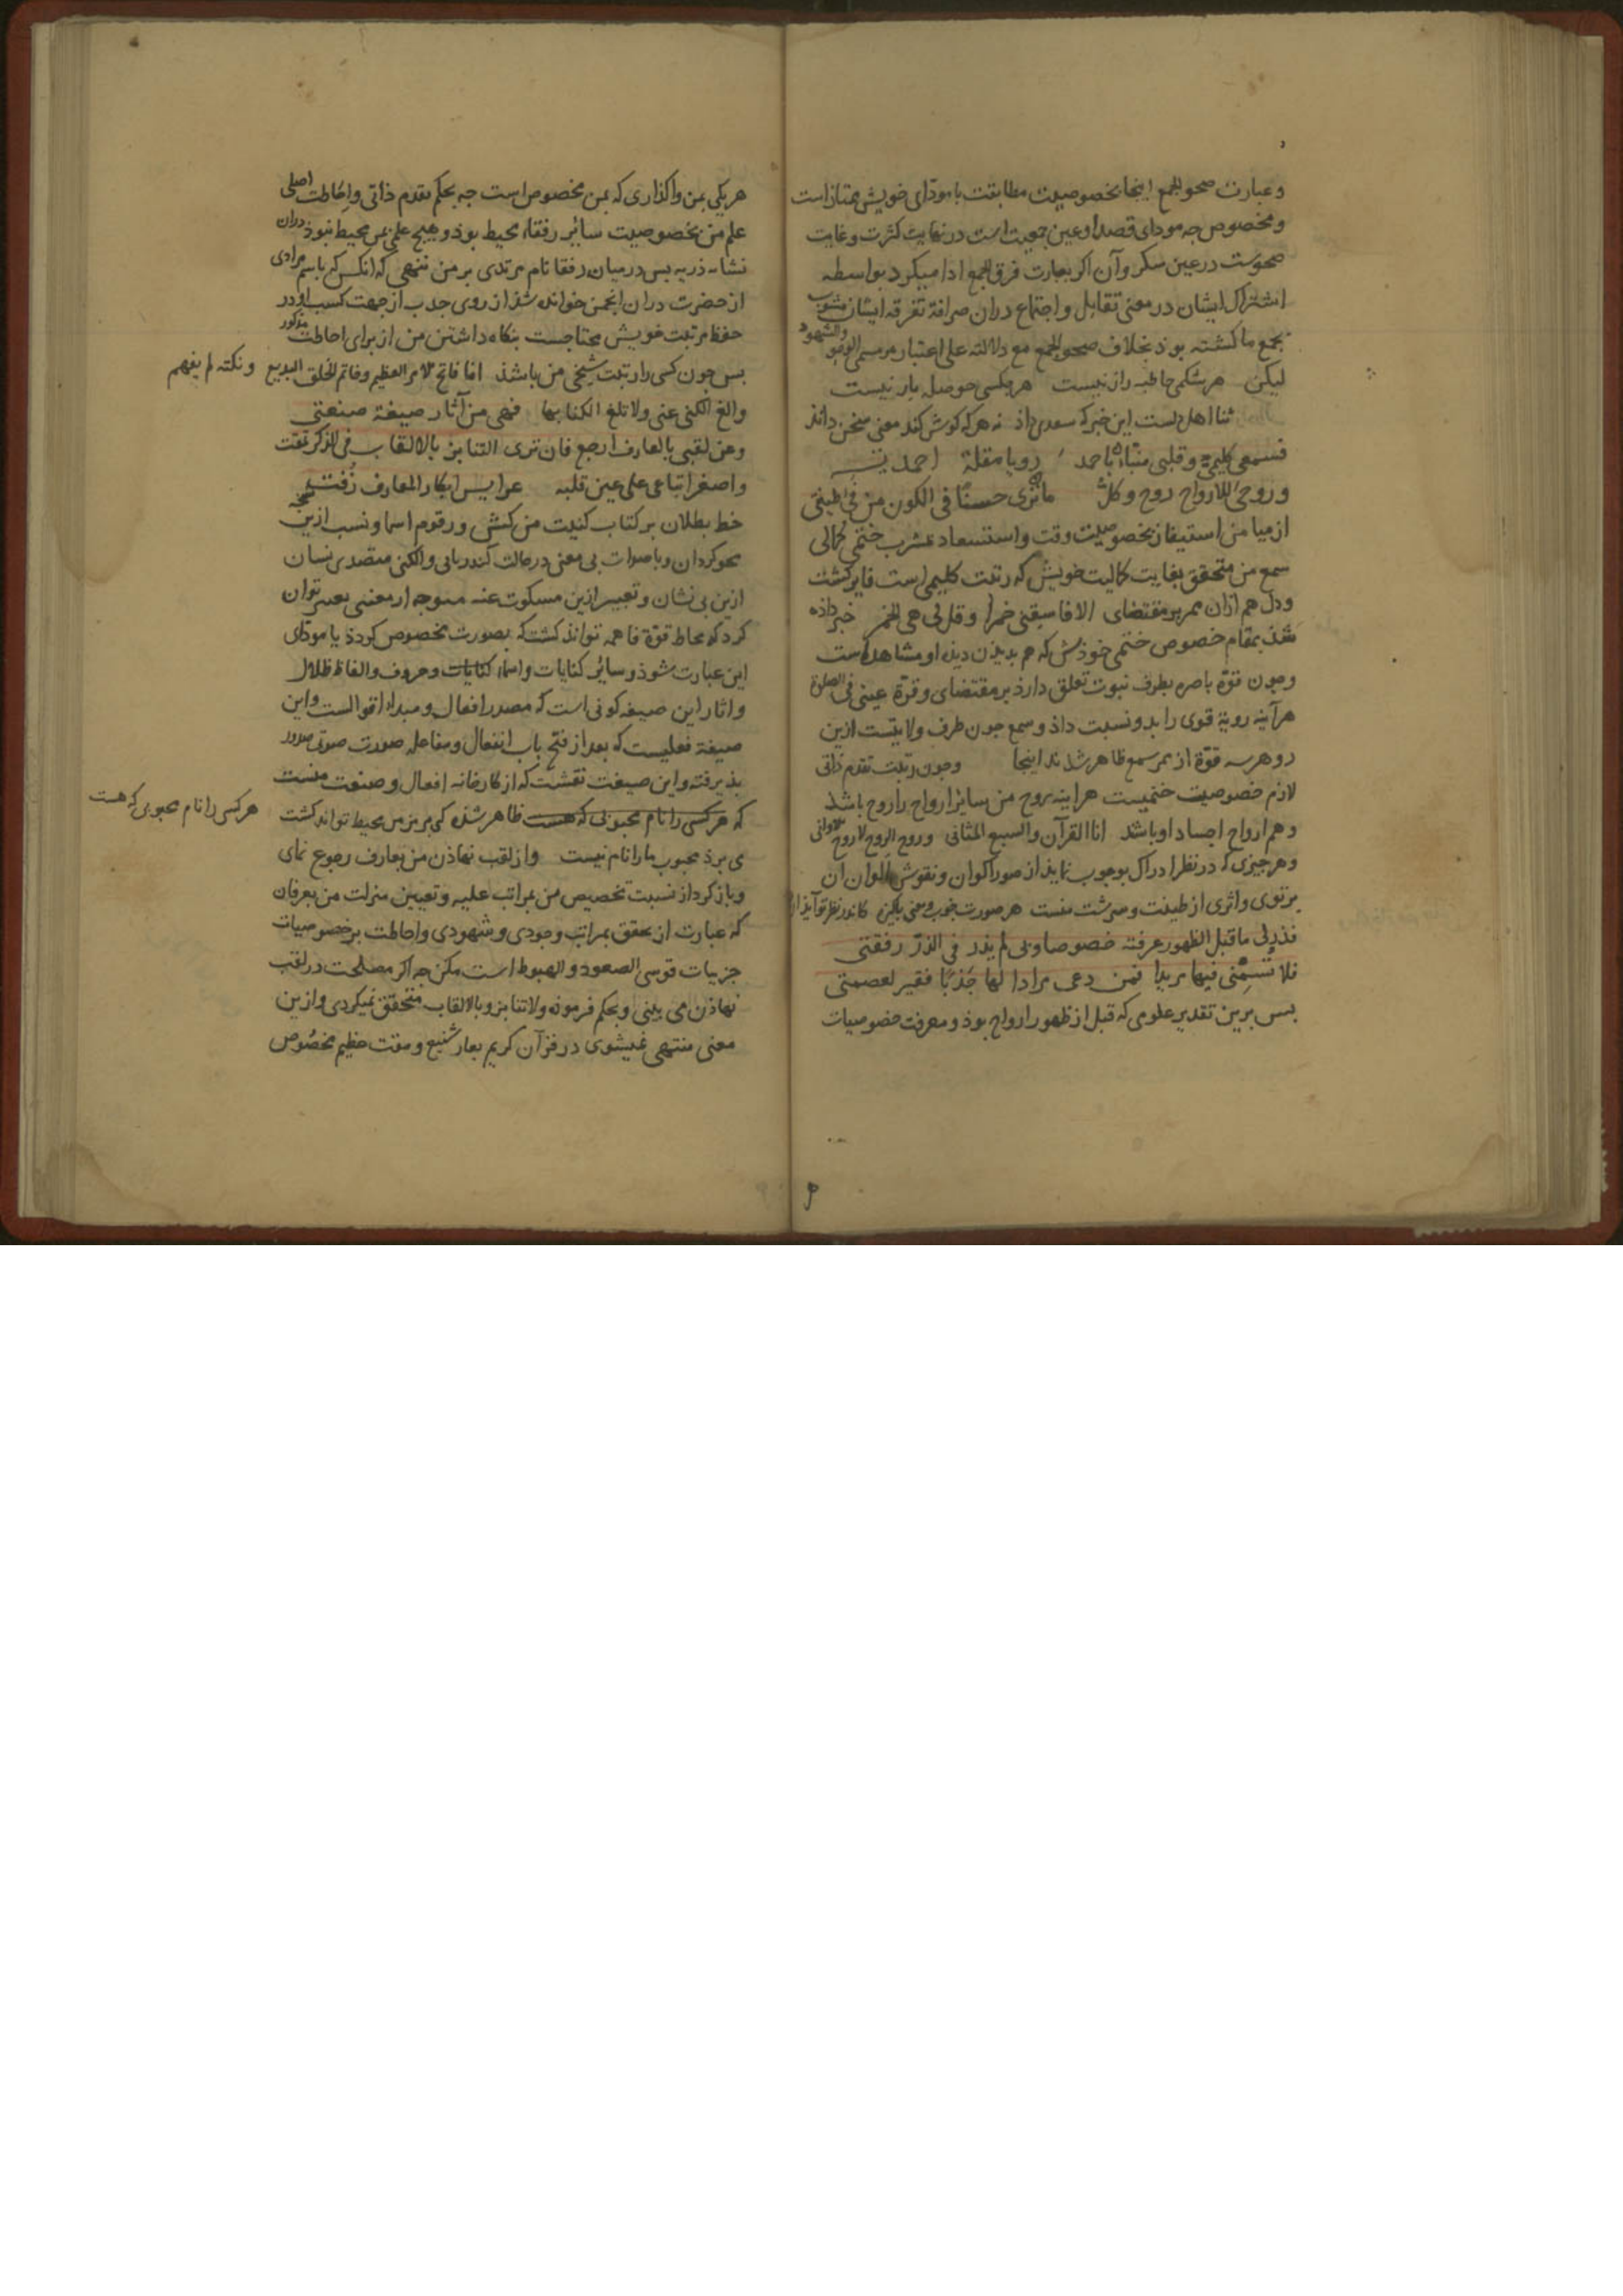 وعبارت صحو الجمع اینجا بخصوصیت مطابقت با مودّای خویش ممتاز است
ومخصوص جه مودای قصد او عین جمعیت است در نهایت کثرت و غایت
صحوست در عین سکر وآن اکر بعبارت فرق الجمع ادا میکرد بواسطه
اشتراک ایشان در معنی تقابل و اجتماع دران صرافة تفرقه ایشان مشوب
بجمع ما کشته بوذ بخلاف صحو الجمع مع دلالته علی اعتبار مرسمی الوجود والشهود
لیکن هر شکمی حاطبه راز نیست هر مکسی حوصله باز نیست
ثنا اهل دلست این خبر که سعدی داذ نه هر که کوش کند معنی سخن داند
فسمعی کلیمیّ وقلبی منبّاء باحمد رویا مقلة احمدیة
وروحی للارواح روح وکلّ ما تری حسنًا فی الکون من فیض طینتی
ازمیامن استیفاز بخصوصیت وقت واستسعاد مشرب ختمی کمالی
سمع من متحقق بغایت کمالیت خویش که رتبت کلیمی است فایز کشت
ودل هم ازان ممر بر مقتضای الا فاسقنی خمرا وقل لی هی الخمر خبر داذه
شذ بمقام خصوص ختمی خوذش که هم بدیدن دیده او مشاهدست
وجون قوّة باصره بطرف نبوت تعلق دارذ بر مقتضای وقرّة عینی فی الصلوة
هرآینه رویة قوی را بدو نسبت داذ وسمع جون طرف ولایتست ازین
رو هر سه قوّة از ممر سمع ظاهر شدند اینجا وجون رتبت تقدم ذاتی
لازم خصوصیت ختمیست هراینه روح من سایر ارواح را روح باشذ
وهم ارواح اجساد او باشذ انا القرآن والسبع المثانی وروح الروح لا روح الاوانی
وهر جیزی که در نظر ادراک بوجوب نماید از صور اکوان ونقوش الوان ان
برتوی واثری از طینت وسرشت منست هر صورت خوب ومعنی باکیزه کاندر نظر تو آیذ از
فذرلی ما قبل الظهور عرفته خصوصا وبی لم یذر فی الذرّ رفقتی
فلا تُسَمِّنی فیها مریدا فمن دعی مرادا لها جَذبًا فقیر لعصمتی
بس برین تقدیر علومی که قبل از ظهور ارواح بوذ ومعرفت خصوصیات
هر یکی بمن واکذاری که بمن مخصوص است جه بحکم تقدم ذاتی واحاطت اصلی
علم من بخصوصیت سائر رفقاء محیط بوذ وهیج علمی بمن محیط نبوذ دران
نشاء ذریه بس درمیان رفقا نام مریدی بر من ننهی که انکس که باسم مرادی
از حضرت دران انجمن خوانده شذ از روی جذب از جهت کسب او در
حفظ مرتبت خویش محتاجست بنکاه داشتن من از برای احاطت مذکور
بس جون کسی را رتبت شیخی من باشذ انا فاتح الامر العظیم وخاتم الخلق البدیع ونکته لم یفهم
والغ الکنی عنی ولا تلغ الکنا بها فهی من آثار صیغة صنعتی
وعن لقبی بالعارف ارجع فان تری التنابز بالالقاب فی الذکر تمقت
واصغر اتباعی علی عین قلبه عرایس ابکار المعارف زُفّت
خط بطلان بر کتاب کنیت من کش ورقوم اسما ونسب ازین
محو کردان وباصوات بی معنی درحالت کندزبانی والکنی متصدی نسان
ازین بی نشان وتعبیر ازین مسکوت عنه
کرد که محاط قوّة فاهمه تواند کشت که بصورت مخصوص کردد یا مودّای
این عبارت شوذ وسائر کنایات واسماء کنایات وحروف والفاظ ظلال
واثار این صیغه کونی است که مصدر افعال ومبداء اقوالست واین
صیغة فعلیست که بعد از فتح باب انفعال ومفاعله صورت صوتی صدور
بذیرفته واین صیغت نقشت که از کارخانه افعال وصنعت منست
که هر کسی را نام محبوبی که هست ظاهر شذه کی بر من محیط تواند کشت هر کسی را نام محبوبی که هست
می برذ محبوب ما را نام نیست واز لقب نهاذن من بعارف رجوع نمای
وباز کرد از نسبت تخصیص من بمراتب علیه وتعیین منزلت من بعرفان
که عبارت از تحقق بمراتب وجودی وشهودی واحاطت بر خصوصیات
جزییات قوسی الصعود والهبوط است مکن جه اکر مصلحت در لقب
نهاذن می بینی وبحکم فرموده ولا تنابزو بالالقاب متحقق نمیکردی وازین
معنی منتهی نمیشوی در قرآن کریم بعار شنیع ومقت عظیم مخصوص